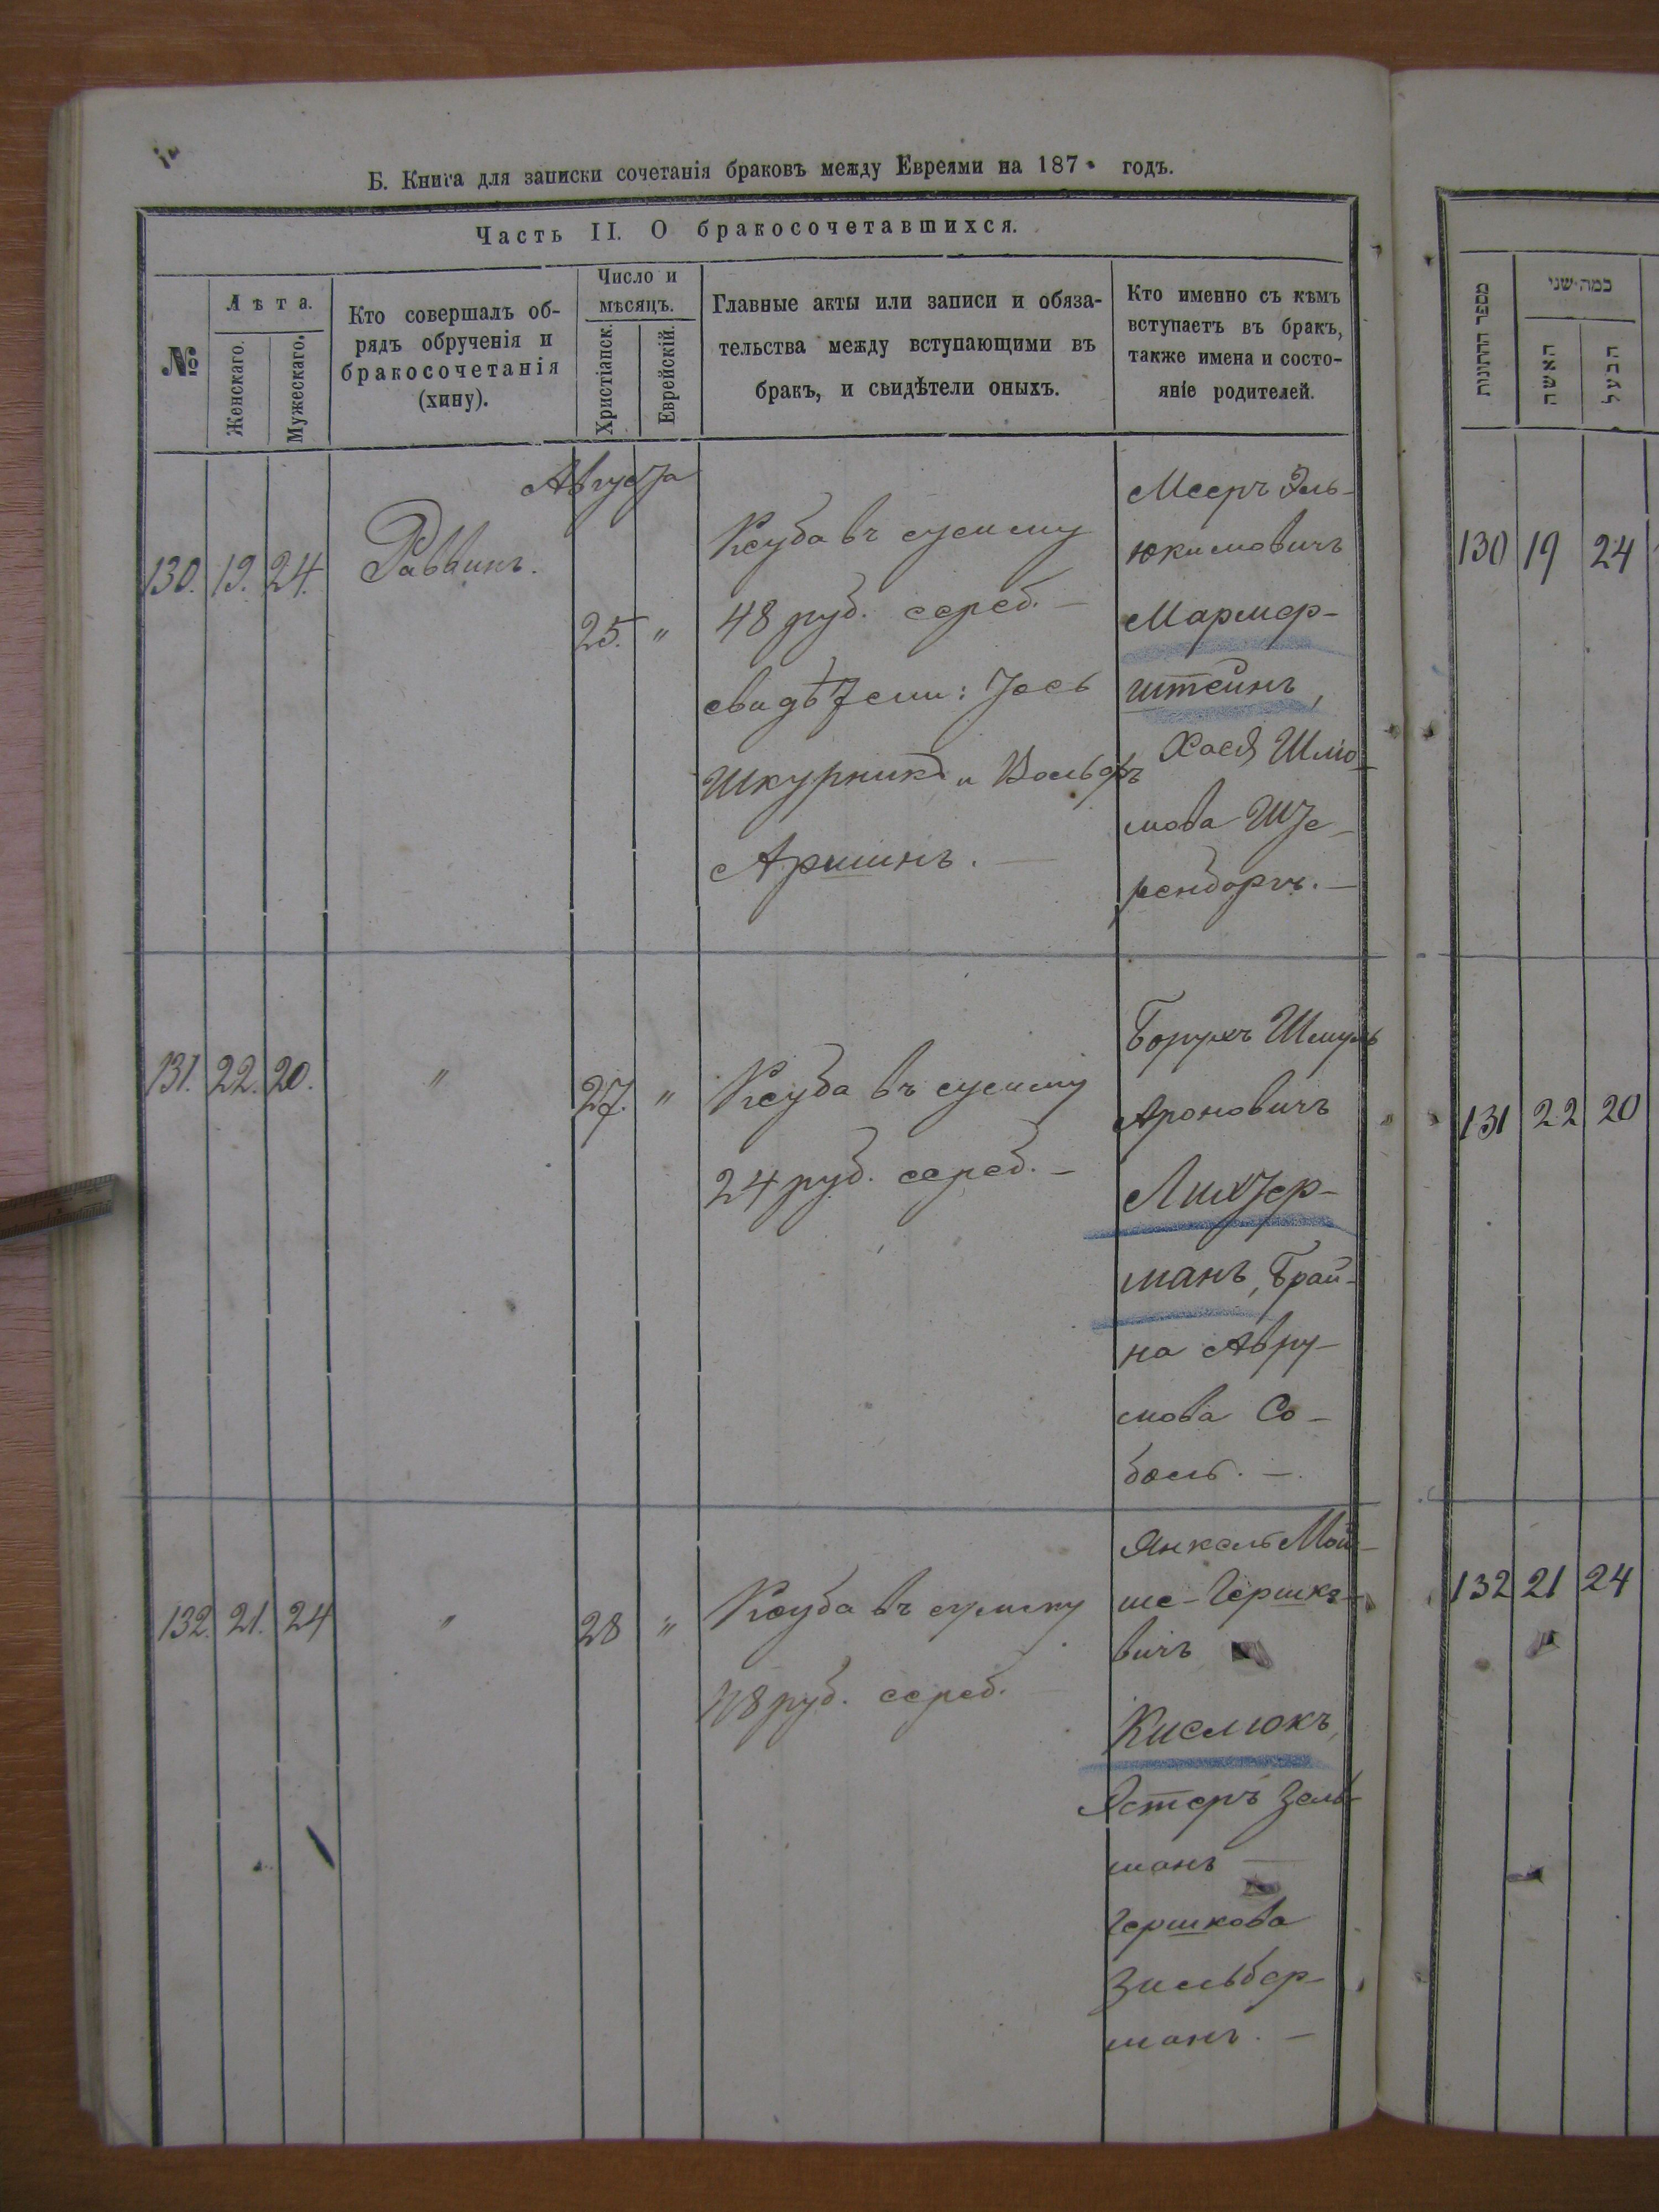 Б. Книга для записки сочетанія браковъ между Евреями на 187 годъ.
Часть II. О бракосочетавшихся.
№
Лѣта.
Женскаго.
Мужескаго.
Кто совершалъ об-
рядъ обрученія и
бракосочетанія
(хину).
Число и
мѣсяцъ.
Христіанск.
Еврейскій.
Главные акты или записи и обяза-
тельства между вступающими въ
бракъ, и свидѣтели оныхъ.
Кто именно съ кѣмъ
вступаетъ въ бракъ,
также имена и состо-
яніе родителей.
Августа
130. 19. 24. Раввинъ.
25. "
Ксуба въ сумму
48 руб. сереб. —
свидѣтели: Іось
Шкурникъ и Вольфъ
Аршинъ. —
Мееръ Эль-
юкимовичъ
Мармер-
штейнъ,
Хася Шлио-
мова Ште-
ренборгъ. —
131. 22. 20. "
27. "
Ксуба въ сумму
24 руб. сереб. —
Борухъ Шмуль
Ароновичъ
Лихтер-
манъ, Брай-
на Авру-
мова Со-
боль. —
132. 21. 24 "
28 "
Ксуба въ сумму
48 руб. сереб. —
Янкель Мой-
ше-Гершко-
вичъ
Кислюкъ,
Эстеръ Зель-
манъ —
Гершкова
Зильбер-
манъ. —
מספר החתונות
כמה שני
האשה
הבעל
130 19 24
131 22 20
132 21 24